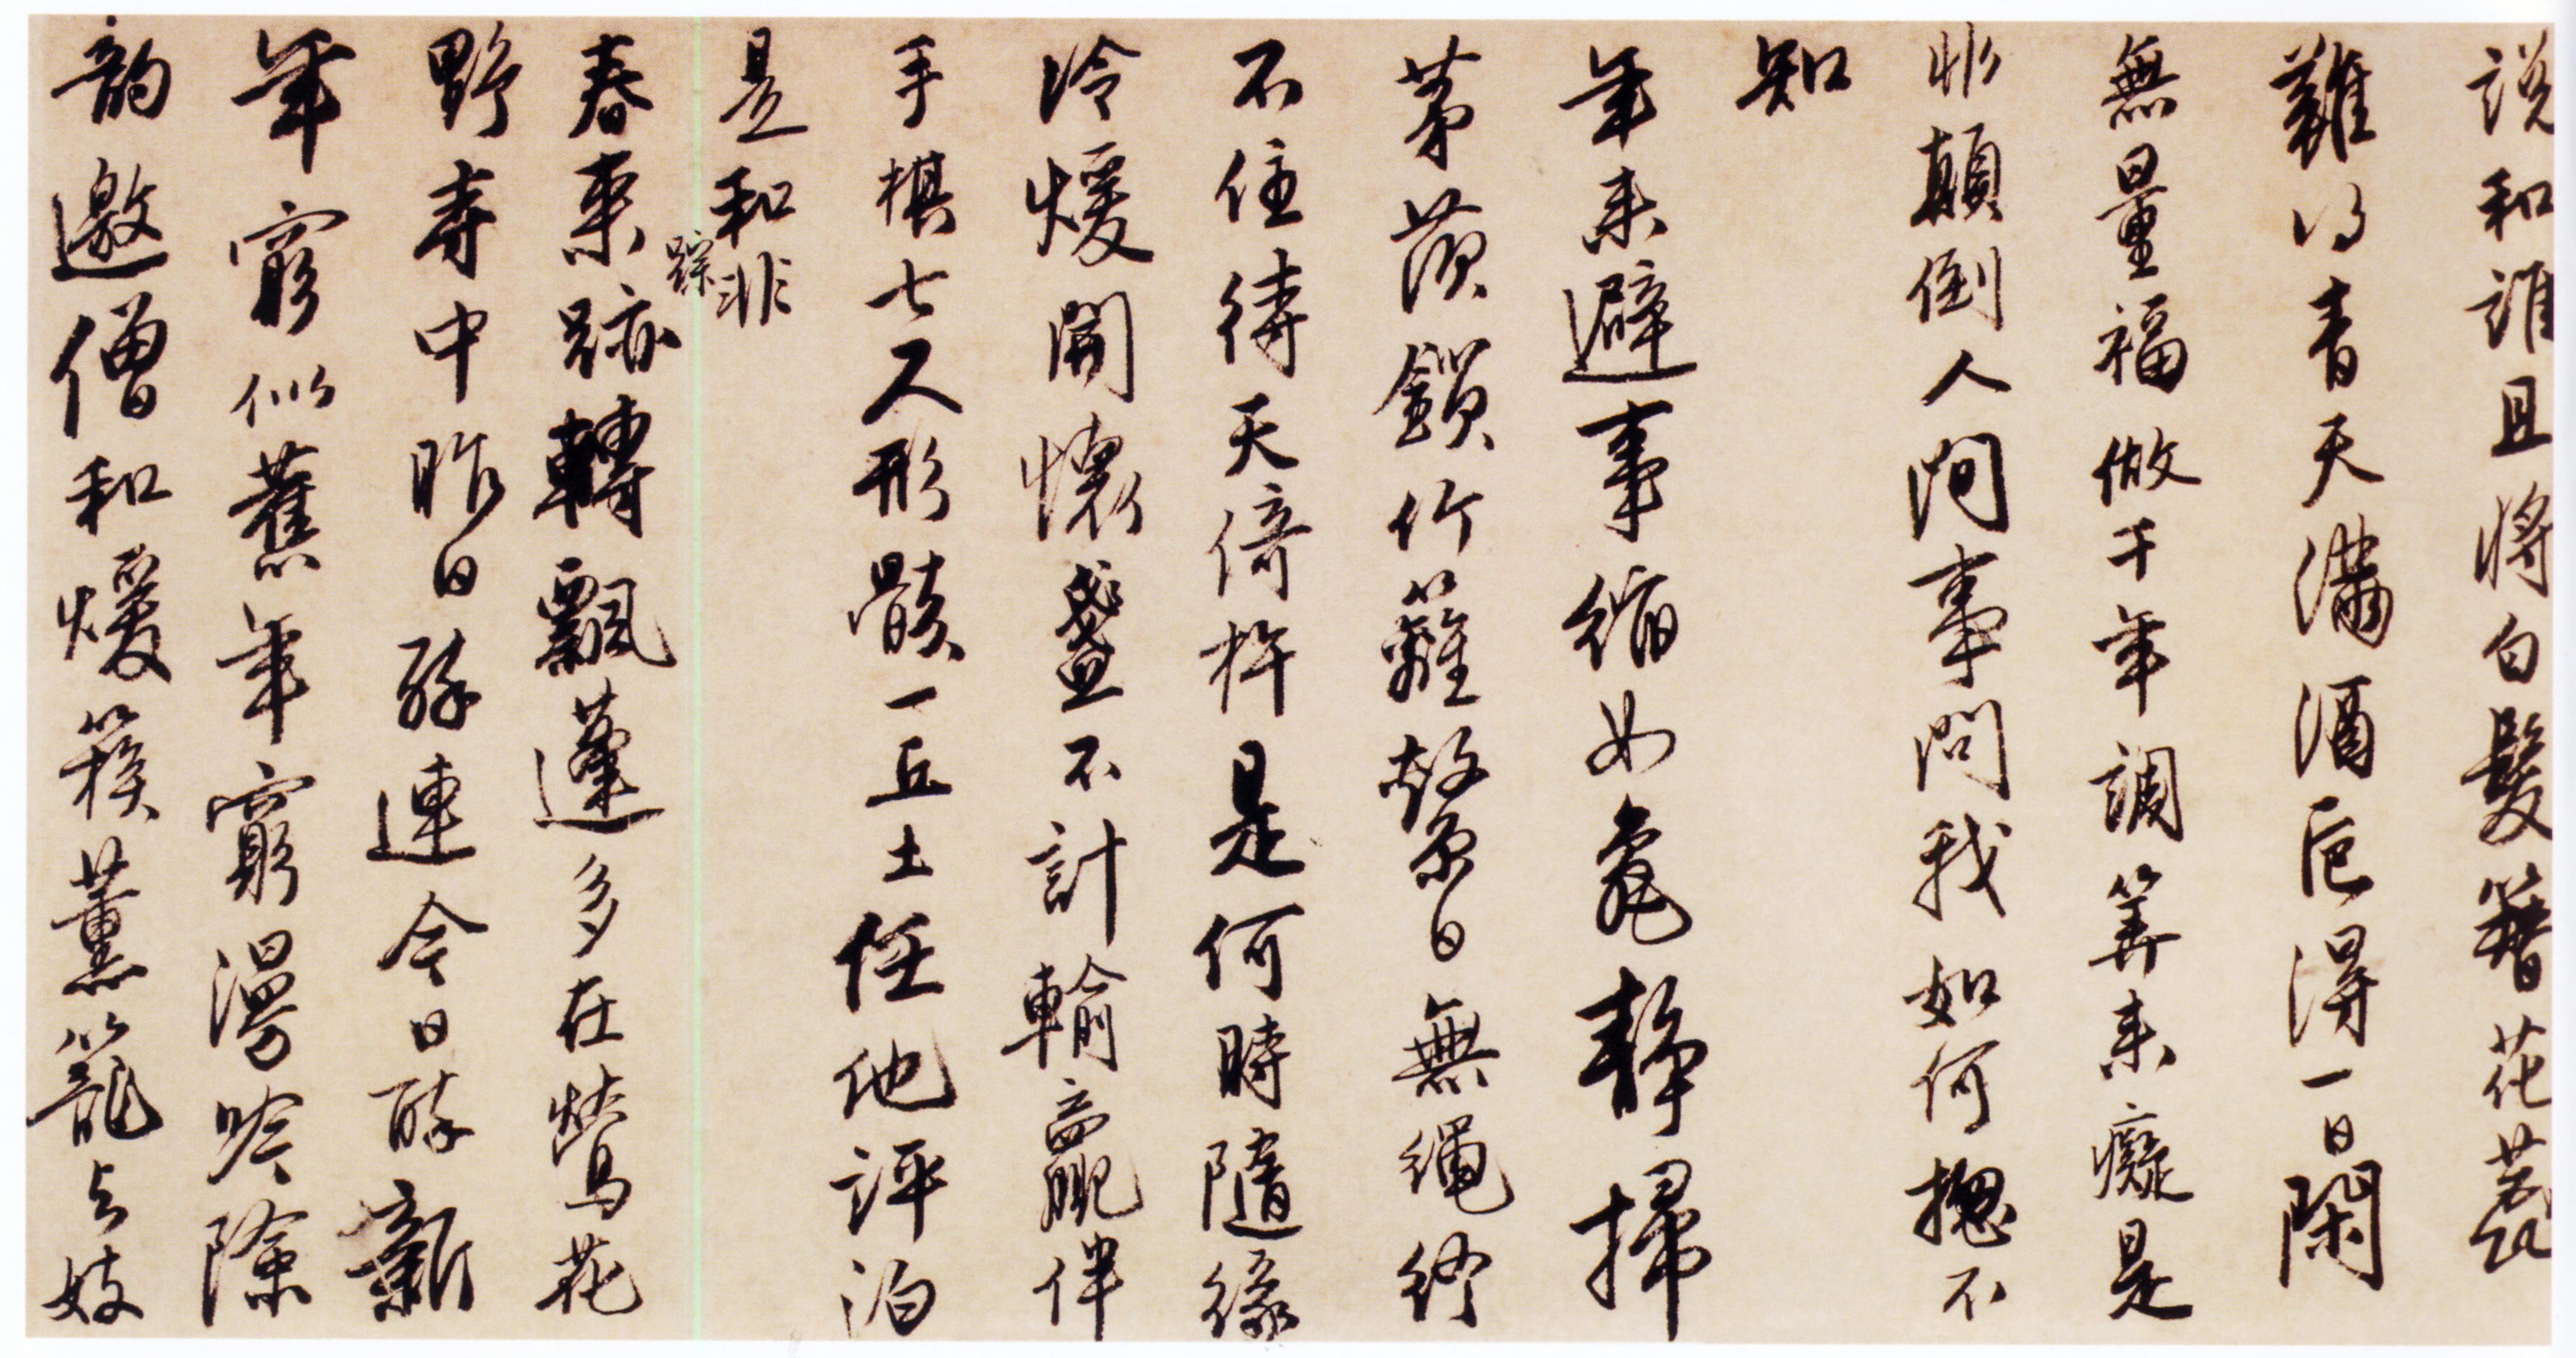 説和誰且將白髮簪花蕊
難得青天滿酒卮得一日閑
無量福做千年調算來癡是
非顛倒人間事問我如何揔不
知
年來避事縮如龜靜掃
茅茨鎖竹籬繫日無繩終
不住待天倚杵是何時隨緣
冷煖開懷盞不計輸贏伴
手棋七尺形骸一丘土任他評泊
是和非
春來踪跡轉飄蓬多在鶯花
野寺中昨日醉連今日醉新
年窮似舊年窮漫吟險
韵邀僧和煖簇薰籠与妓